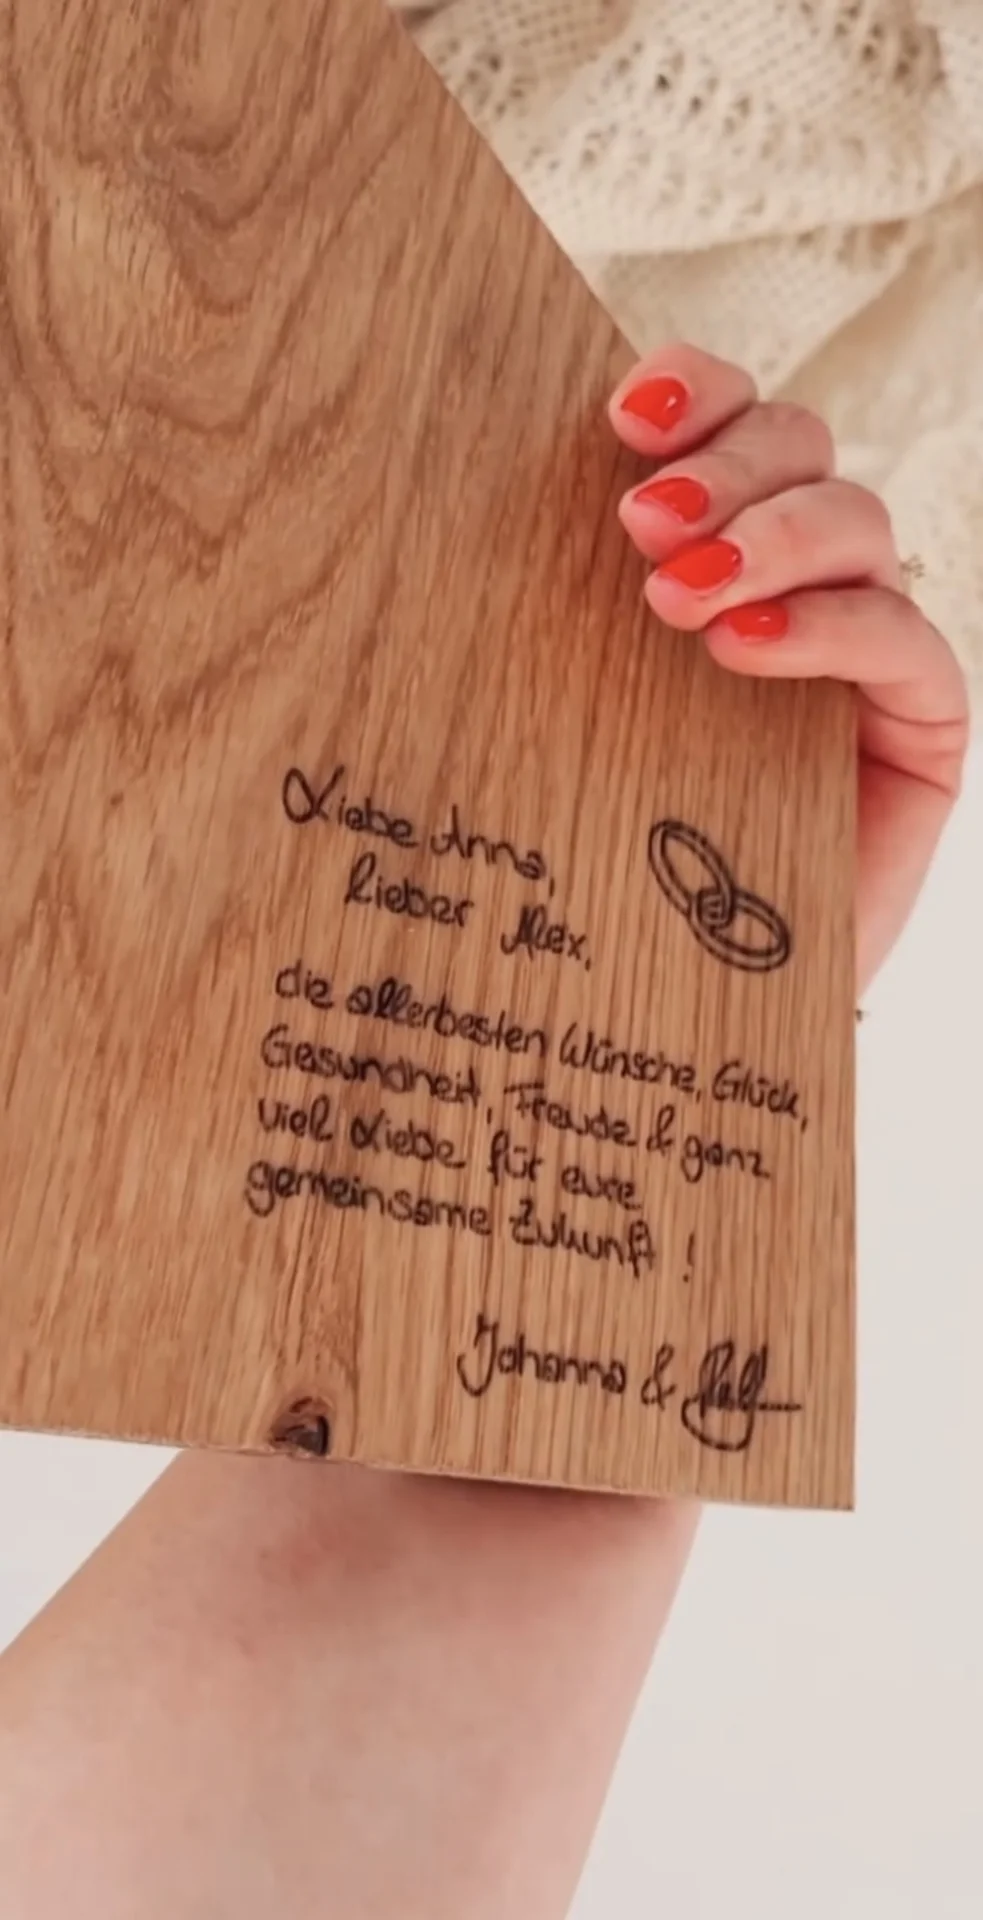 Liebe Anna,
lieber Alex,
die allerbesten Wünsche, Glück,
Gesundheit, Freude & ganz
viel Liebe für eure
gemeinsame Zukunft !
Johanna & Ralf